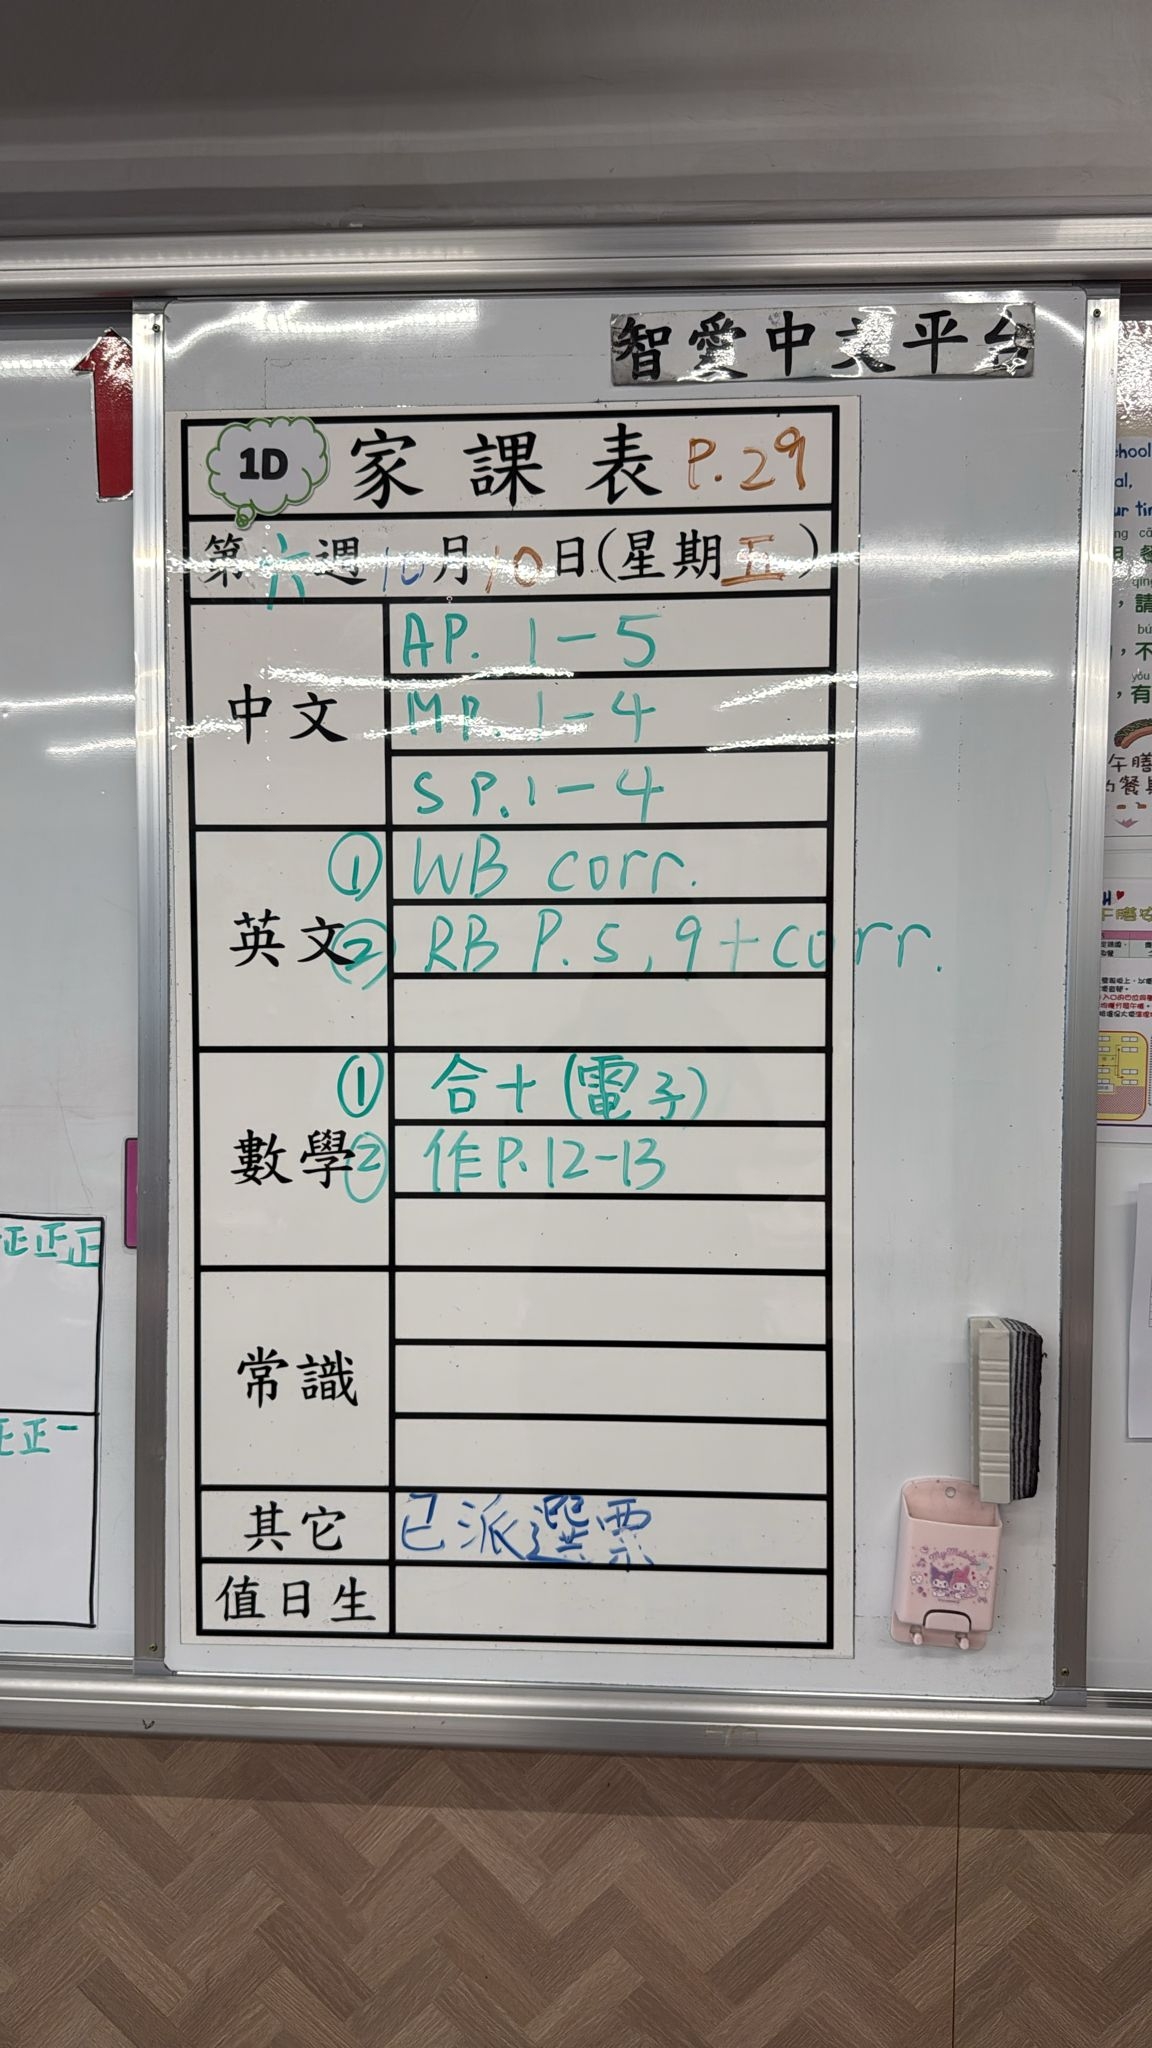 智愛中文平台
1D 家課表 P.29
第六週 10月10日(星期五)
中文
AP. 1-5
MP. 1-4
SP. 1-4
英文
① WB corr.
② RB P.5, 9+corr.
數學
① 合十(電子)
② 作P.12-13
常識
其它
已派選票
值日生
正正正
正正一
My Melody